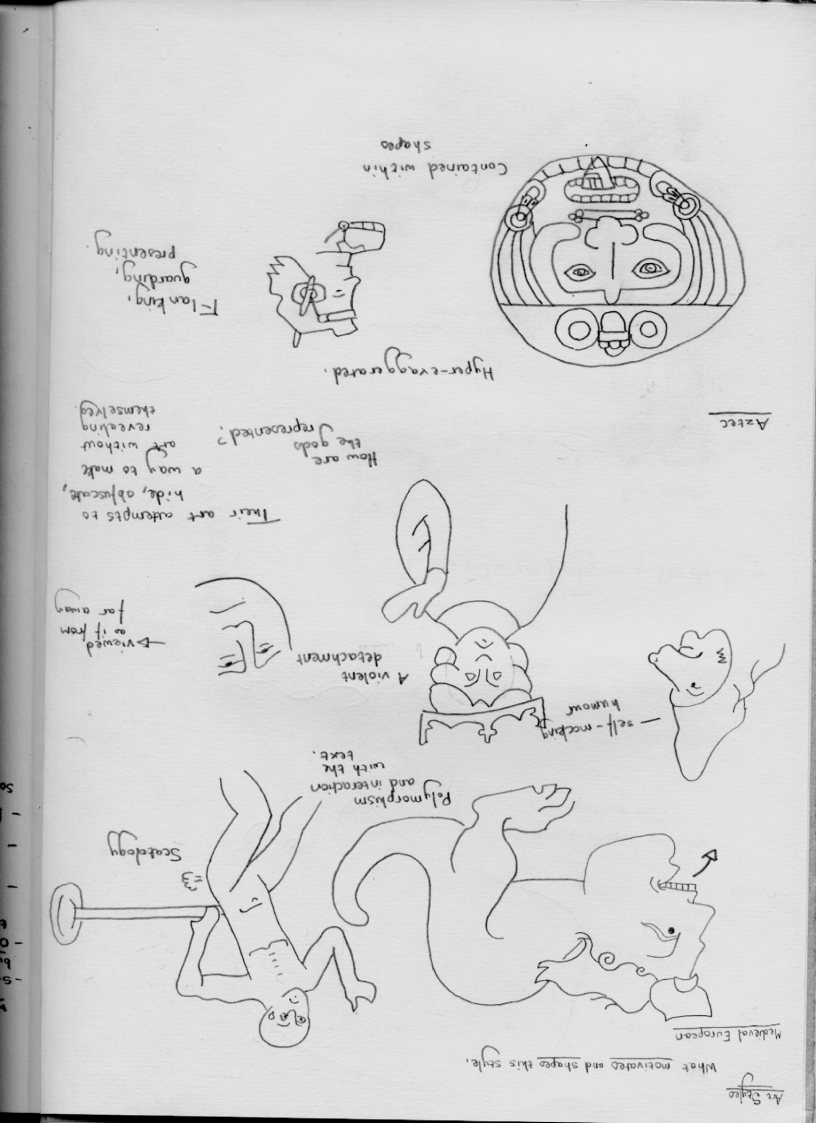 Art Styles
What motivates and shapes this style.
Medieval European
Scatology
Polymorphism
and interaction
with the
text.
self-mocking
humour
A violent
detachment
viewed
as if from
far away
Their art attempts to
hide, obfuscate,
a way to make
art without
revealing
themselves.
How are
the gods
represented?
Aztec
Hyper-exaggerated.
Flanking,
guarding,
presenting.
Contained within
shapes